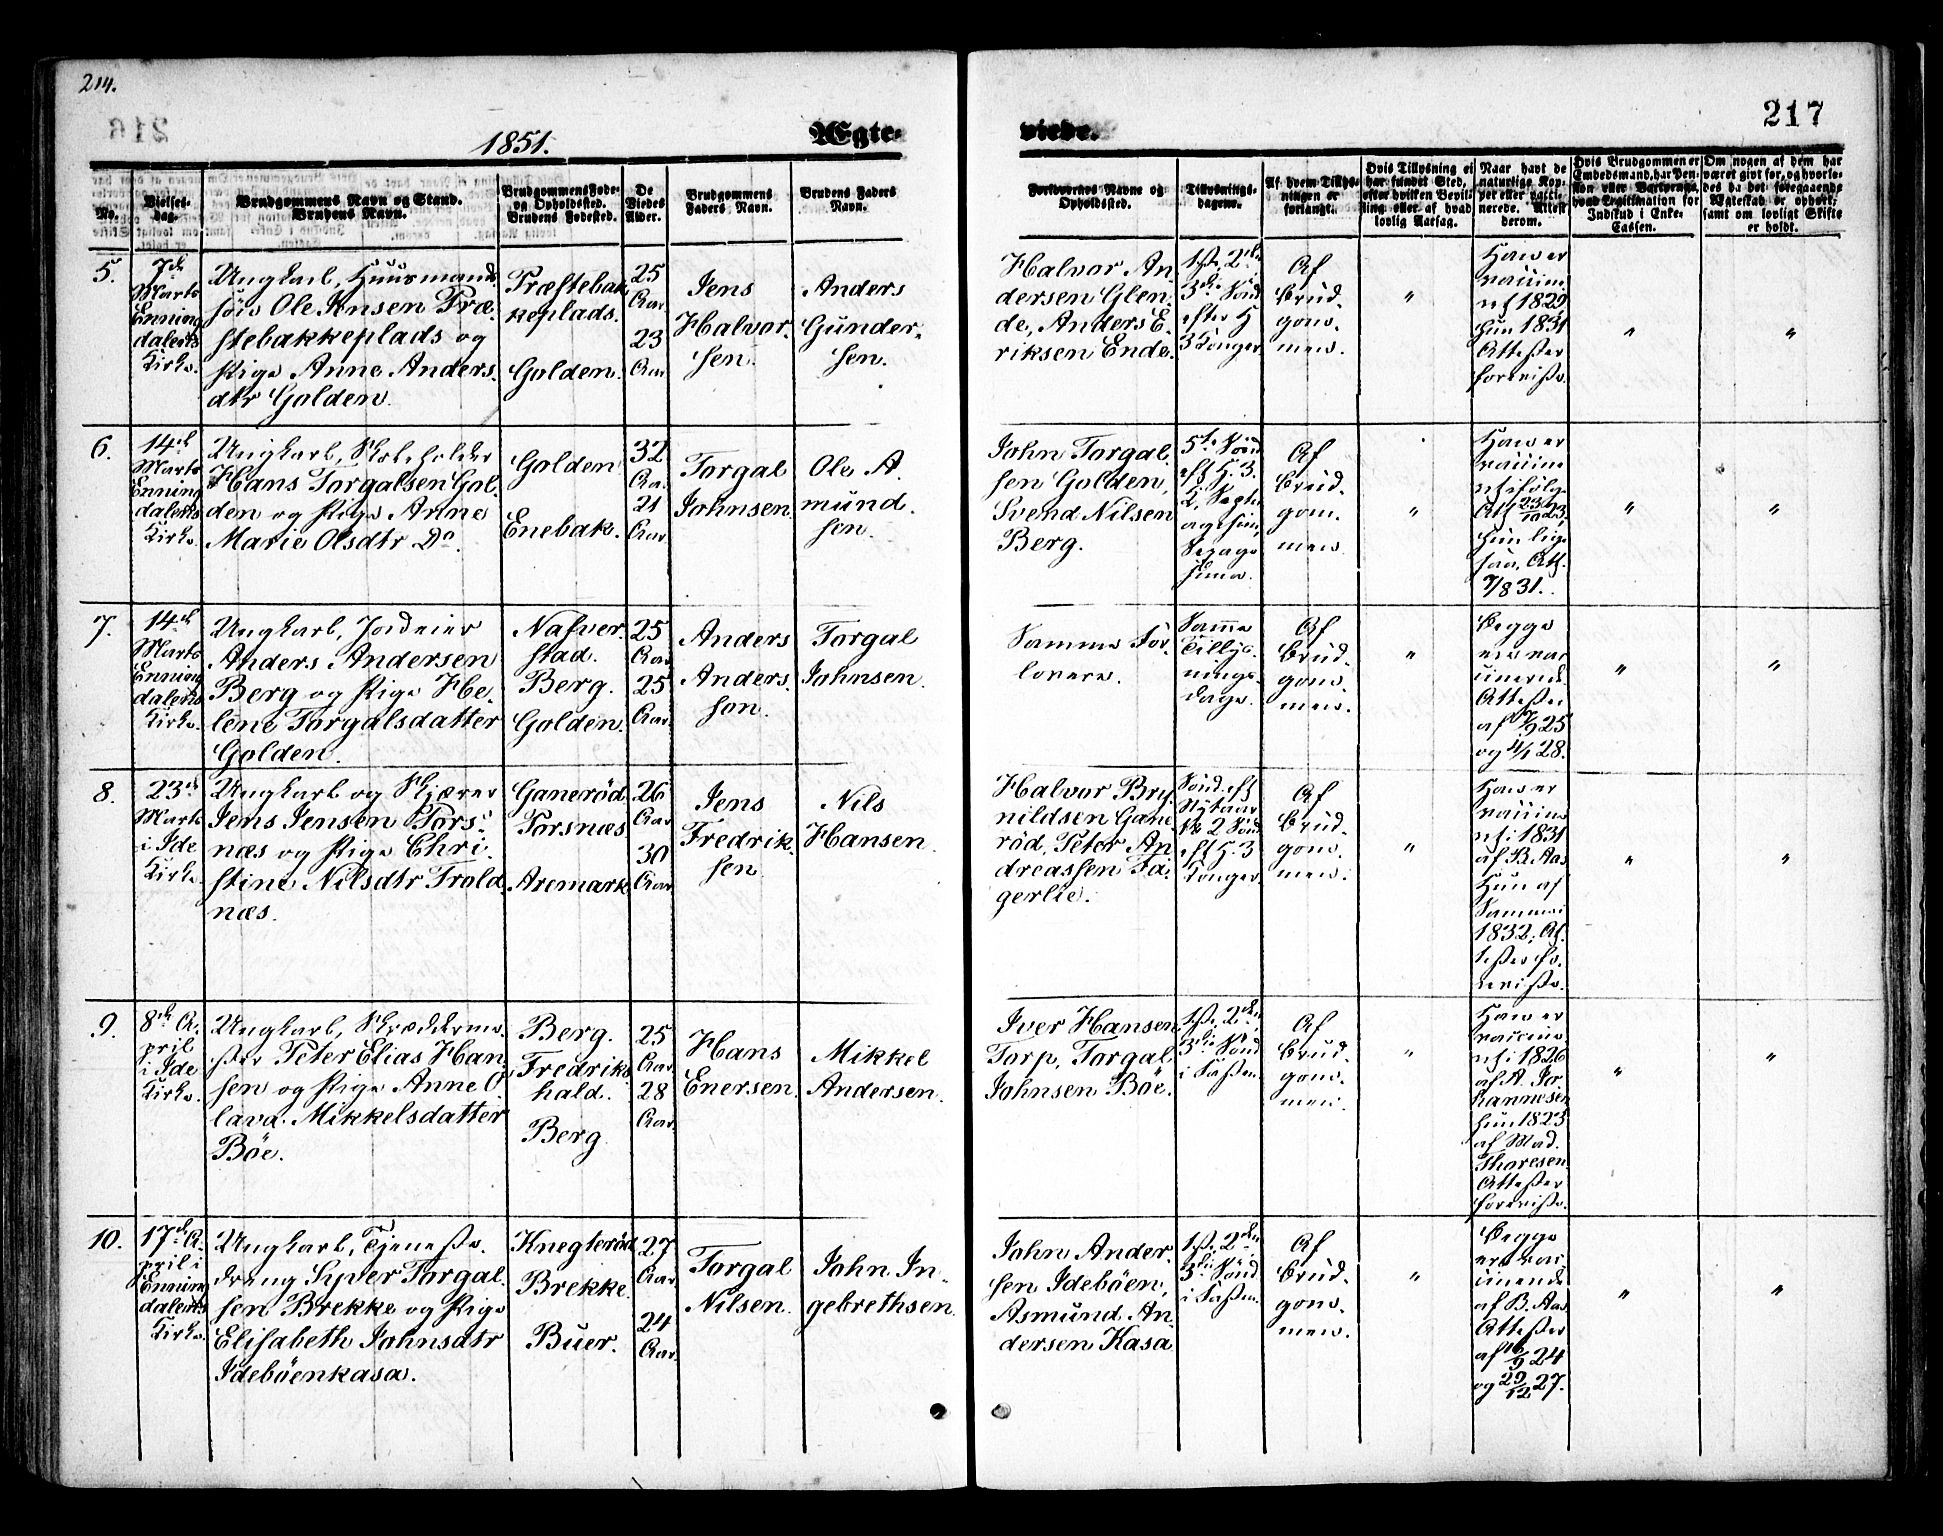 214.
217
1851.
Ægte-
viede.
No.
Vielses-
dag.
Brudgommens Navn og Stand.
Brudens Navn.
Brudgommens Føde-
og Opholdssted.
Brudens Fødested.
De
Viedes
Alder.
Brudgommens
Faders Navn.
Brudens Faders
Navn.
Forlovernes Navne og
Opholdssted.
Tillysnings-
dagene.
Af hvem Tillys-
ningen er
forlangt.
Hvis Tillysning ei
har fundet Sted,
efter hvilken Bevil-
ling eller af hvad
lovlig Aarsag.
Naar havt de
naturlige Kop-
per eller vacci-
nerede. Attest
derom.
Hvis Brudgommen er
Embedsmand, har Pen-
sion eller Vartpenge,
hvad Legitimation for
Indskud i Enke-
Cassen.
Om nogen af dem har
været gift før, og hvorle-
des da det foregaaende
Ægteskab er ophørt;
samt om lovligt Skifte
er holdt.
5.
7de
Marts
Enning
dalens
Kirke.
Ungkarl, Huusmands
søn Ole Jensen Præ-
stebakkeplads og
Pige Anne Anders-
dtr Golden.
Præstebak
keplads.
Golden.
25
Aar
23
Aar
Jens
Halvor-
sen.
Anders
Gunder-
sen.
Halvor An
dersen Glen-
de, Anders E-
riksen Ende.
1ste, 2den
3die Sønd
efter H
3 Konger.
Af
Brud-
gom-
men.
"
Han er
vaccine
ret 1829,
hun 1831
Attester
foreviste.
"
"
6.
14de
Marts
Enning
dalens
Kirke.
Ungkarl,
Hans Torgalsen Gol-
den og Pige Anne
Marie Olsdtr Do.
Golden
Enebak.
32
Aar
21
Aar
Torgal
Johnsen.
Ole A.
mund.
sen.
John Torgal.
sen Golden,
Svend Nilsen
Berg.
5te Sønd
eft H. 3
K,
Af
Brud-
gom-
men.
"
Han er
vaccine
ret ifølge
Att 23/10 23,
hun lige
saa, Att.
"
"
7.
14de
Marts
Enning
dalens
Kirke.
Ungkarl, Jordeier
Anders Andersen
Berg og Pige He-
lene Torgalsdatter
Golden.
Nafver-
stad.
Berg.
Golden.
25
Aar
25
Aar.
Anders
Anders-
son.
Torgal
Johnsen.
Samme For-
lovere.
Samme
Tillys-
nings-
dage.
Af
Brud-
gom-
men.
"
Begge
ere vac-
cinerede.
Attester
af 9/9 25
og 4/1 28.
"
"
8.
23de
Marts
i Ide
Kirke.
Ungkarl og Skjærer
Jens Jensen Tors-
næs og Pige Chri-
stine Nilsdtr Trold
næs.
Ganerød
Torsnæs
Aremark
26
Aar
30
Aar
Jens
Fredrik-
sen
Nils
Hansen.
Halvor Bry-
nildsen Gane
rød, Peter An
dreassen Fa-
gerlie.
Sønd. eft
Nytaar
og 2 Sønd
eft H. 3
Konger.
Af
Brud-
gom-
men.
"
Han er
vaccine
ret i 1831
af B. Aas
Hun af
Samme i
1832, At-
tester fo-
reviste.
"
"
9.
8de A-
pril
i Ide
Kirke.
Ungkarl, Skrædderme-
ster Peter Elias Han-
sen og Pige Anne O-
lava Mikkelsdatter
Böe.
Berg.
Fredriks
hald.
Berg
25
Aar
28
Aar.
Hans
Enersen.
Mikkel
Andersen.
Iver Hansen
Torp, Torgal
Johnsen Böe.
1ste, 2den
3die Sønd
i Fasten.
Af
Brud-
gom-
men.
"
Han er
vaccine
ret i 1826
af A. Jo-
hannesen
hun 1823
af Mad.
Thoresen
Attester
foreviste.
"
"
10.
17de A-
pril i
Enning
dalens
Kirke.
Ungkarl, Tjeneste-
dreng Syver Torgal-
sen Brekke og Pige
Elisabeth Johnsdtr
Idebøenkasa.
Knegterød
Brekke.
Buer.
27
Aar
24
Aar.
Torgal
Nilsen.
John In-
gebrethsen.
John Ander-
sen Idebøen,
Asmund An-
dersen Kasa
1ste, 2den
3die Sønd
i Fasten.
Af
Brud-
gom-
men.
"
Begge
ere vac-
cinerede
af B. Aas
Attester
af 16/9 24
og 29/12 27.
"
"